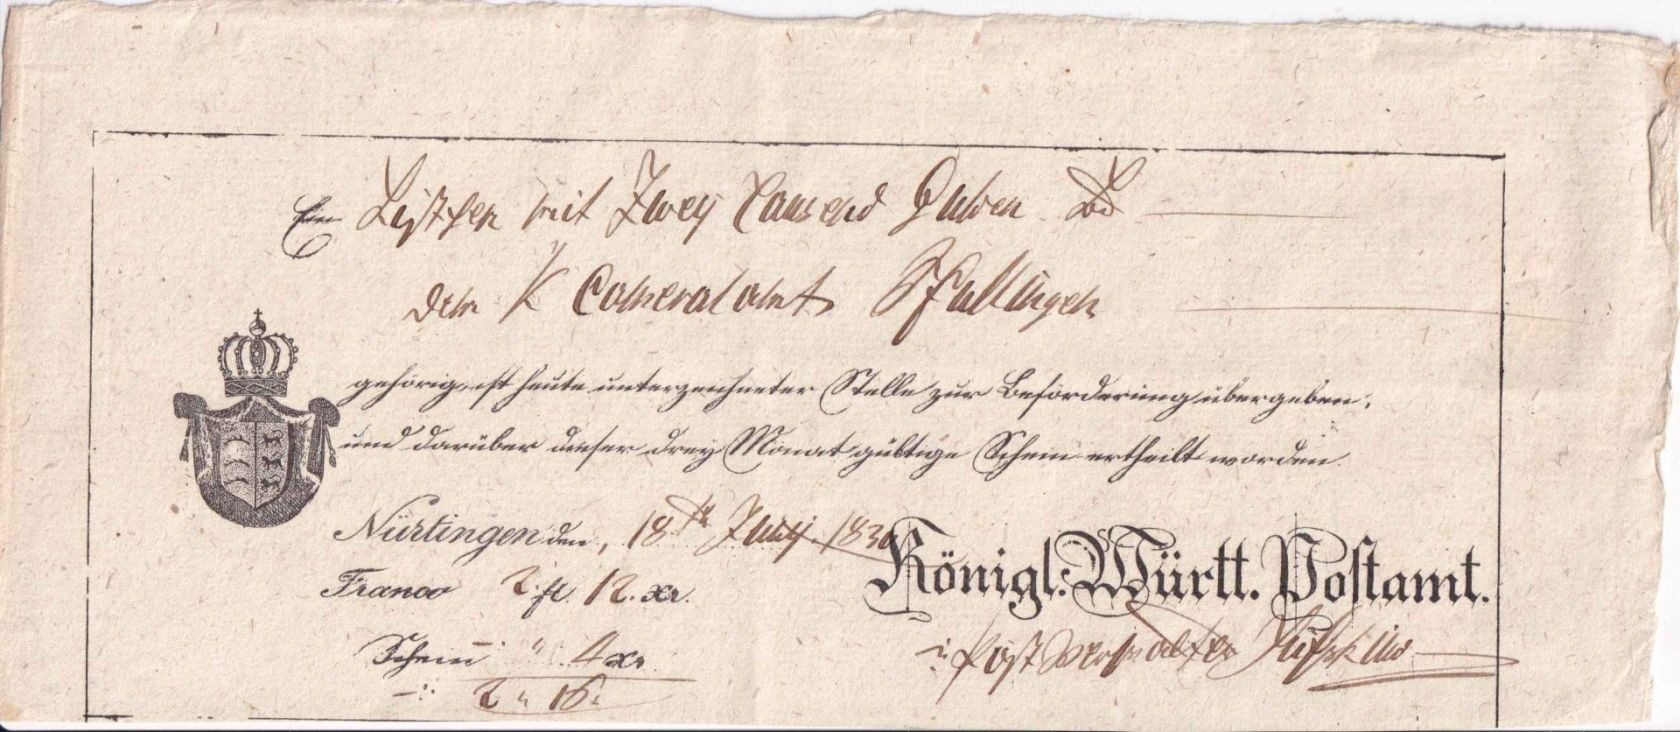 Ein Kistchen mit Zwey Tausend Gulden
dem K Cameralamt Pfullingen
gehörig, ist heute unterzeichneter Stelle zur Beförderung übergeben,
und darüber dieser drey Monat gültige Schein ertheilt worden.
Nürtingen den, 18 ten Juny 1830
Königl. Württ. Postamt.
Franco 2 fl. 12. xr.
Schein " 4 xr
Postverwalter
2 " 16